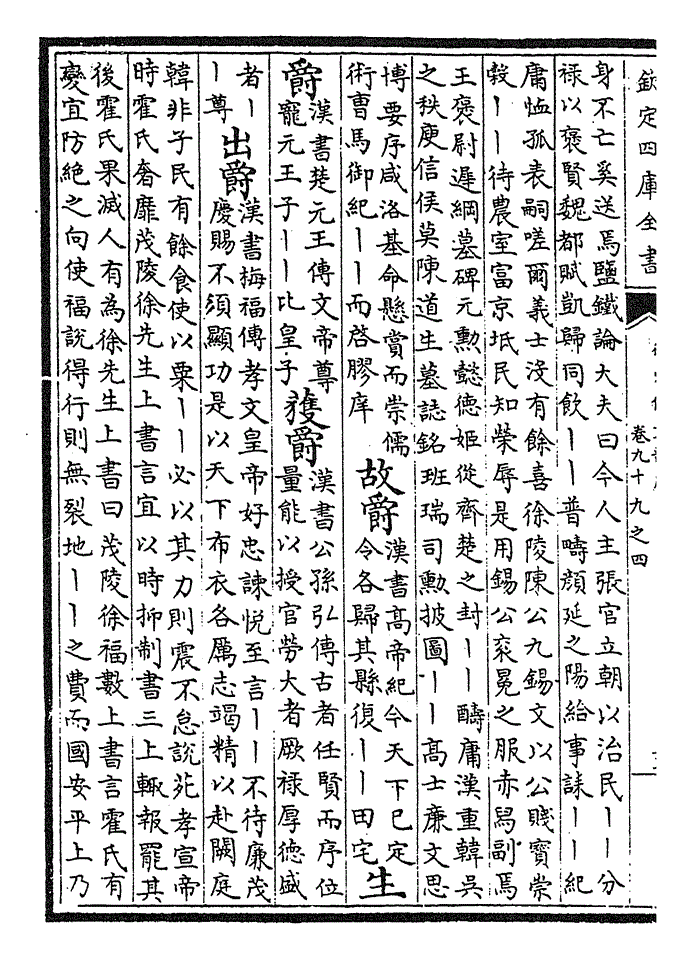 欽定四庫全書
卷九十九之四
身不亡奚送焉鹽鐵論大夫曰今人主張官立朝以治民丨丨分
祿以褒賢魏都賦凱歸同飲丨丨普疇顔延之陽給事誄丨丨紀
庸恤孤表嗣嗟爾義士沒有餘喜徐陵陳公九錫文以公賤寳崇
穀丨丨待農室富京坻民知榮辱是用錫公衮冕之服赤舄副焉
王褒尉遲綱墓碑元勲懿德姬從齊楚之封丨丨疇庸漢重韓吳
之秩庾信侯莫陳道生墓誌銘班瑞司勲披圖丨丨髙士廉文思
博要序咸洛基命懸賞而崇儒
術曹馬御紀丨丨而啓膠庠
故爵
漢書髙帝紀今天下已定
令各歸其縣復丨丨田宅
生
爵
漢書楚元王傳文帝尊
寵元王子丨丨比皇子
獲爵
漢書公孫弘傳古者任賢而序位
量能以授官勞大者厥祿厚德盛
者丨
丨尊
出爵
漢書梅福傳孝文皇帝好忠諫悅至言丨丨不待廉茂
慶賜不須顯功是以天下布衣各厲志竭精以赴闕庭
韓非子民有餘食使以粟丨丨必以其力則震不怠說苑孝宣帝
時霍氏奢靡茂陵徐先生上書言宜以時抑制書三上輒報罷其
後霍氏果滅人有為徐先生上書曰茂陵徐福數上書言霍氏有
變宜防絶之向使福說得行則無裂地丨丨之費而國安平上乃